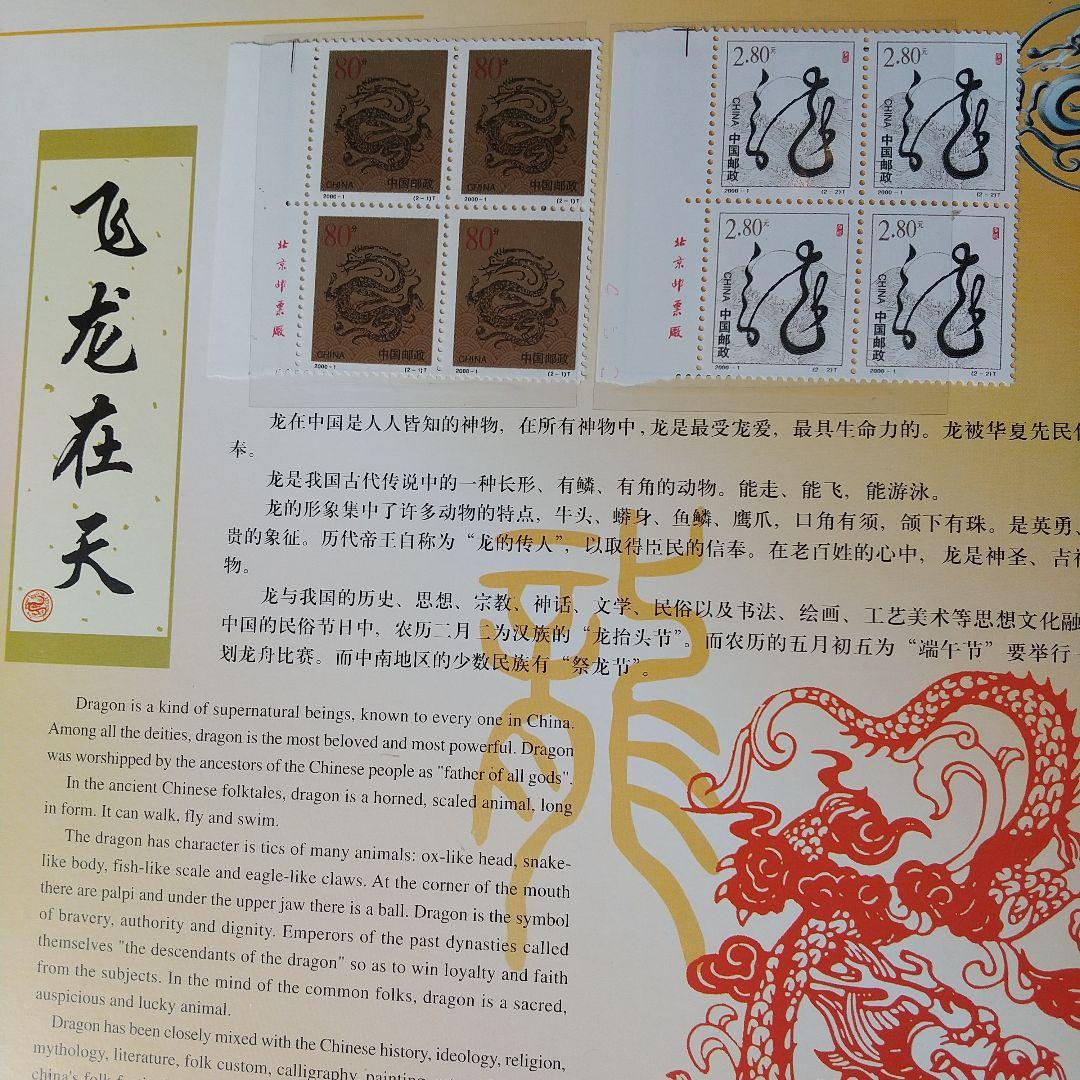 80分
80分
CHINA 中国邮政
CHINA 中国邮政
2000-1 (2-1)T
2000-1 (2-1)T
80分
80分
CHINA 中国邮政
CHINA 中国邮政
2000-1 (2-1)T
2000-1 (2-1)T
北京邮票厂
2.80元
2.80元
CHINA 中国邮政
CHINA 中国邮政
龙
龙
2000-1 (2-2)T
2000-1 (2-2)T
2.80元
2.80元
CHINA 中国邮政
CHINA 中国邮政
龙
龙
2000-1 (2-2)T
2000-1 (2-2)T
北京邮票厂
飞龙在天
龙在中国是人人皆知的神物，在所有神物中，龙是最受宠爱，最具生命力的。龙被华夏先民
奉。
龙是我国古代传说中的一种长形、有鳞、有角的动物。能走、能飞，能游泳。
龙的形象集中了许多动物的特点，牛头、蟒身、鱼鳞、鹰爪，口角有须，颌下有珠。是英勇、
贵的象征。历代帝王自称为“龙的传人”，以取得臣民的信奉。在老百姓的心中，龙是神圣、吉
物。
龙与我国的历史、思想、宗教、神话、文学、民俗以及书法、绘画、工艺美术等思想文化融
中国的民俗节日中，农历二月二为汉族的“龙抬头节”。而农历的五月初五为“端午节”要举行
划龙舟比赛。而中南地区的少数民族有“祭龙节”。
龍
Dragon is a kind of supernatural beings, known to every one in China.
Among all the deities, dragon is the most beloved and most powerful. Dragon
was worshipped by the ancestors of the Chinese people as "father of all gods".
In the ancient Chinese folktales, dragon is a horned, scaled animal, long
in form. It can walk, fly and swim.
The dragon has character is tics of many animals: ox-like head, snake-
like body, fish-like scale and eagle-like claws. At the corner of the mouth
there are palpi and under the upper jaw there is a ball. Dragon is the symbol
of bravery, authority and dignity. Emperors of the past dynasties called
themselves "the descendants of the dragon" so as to win loyalty and faith
from the subjects. In the mind of the common folks, dragon is a sacred,
auspicious and lucky animal.
Dragon has been closely mixed with the Chinese history, ideology, religion,
mythology, literature, folk custom, calligraphy, painting
china's folk